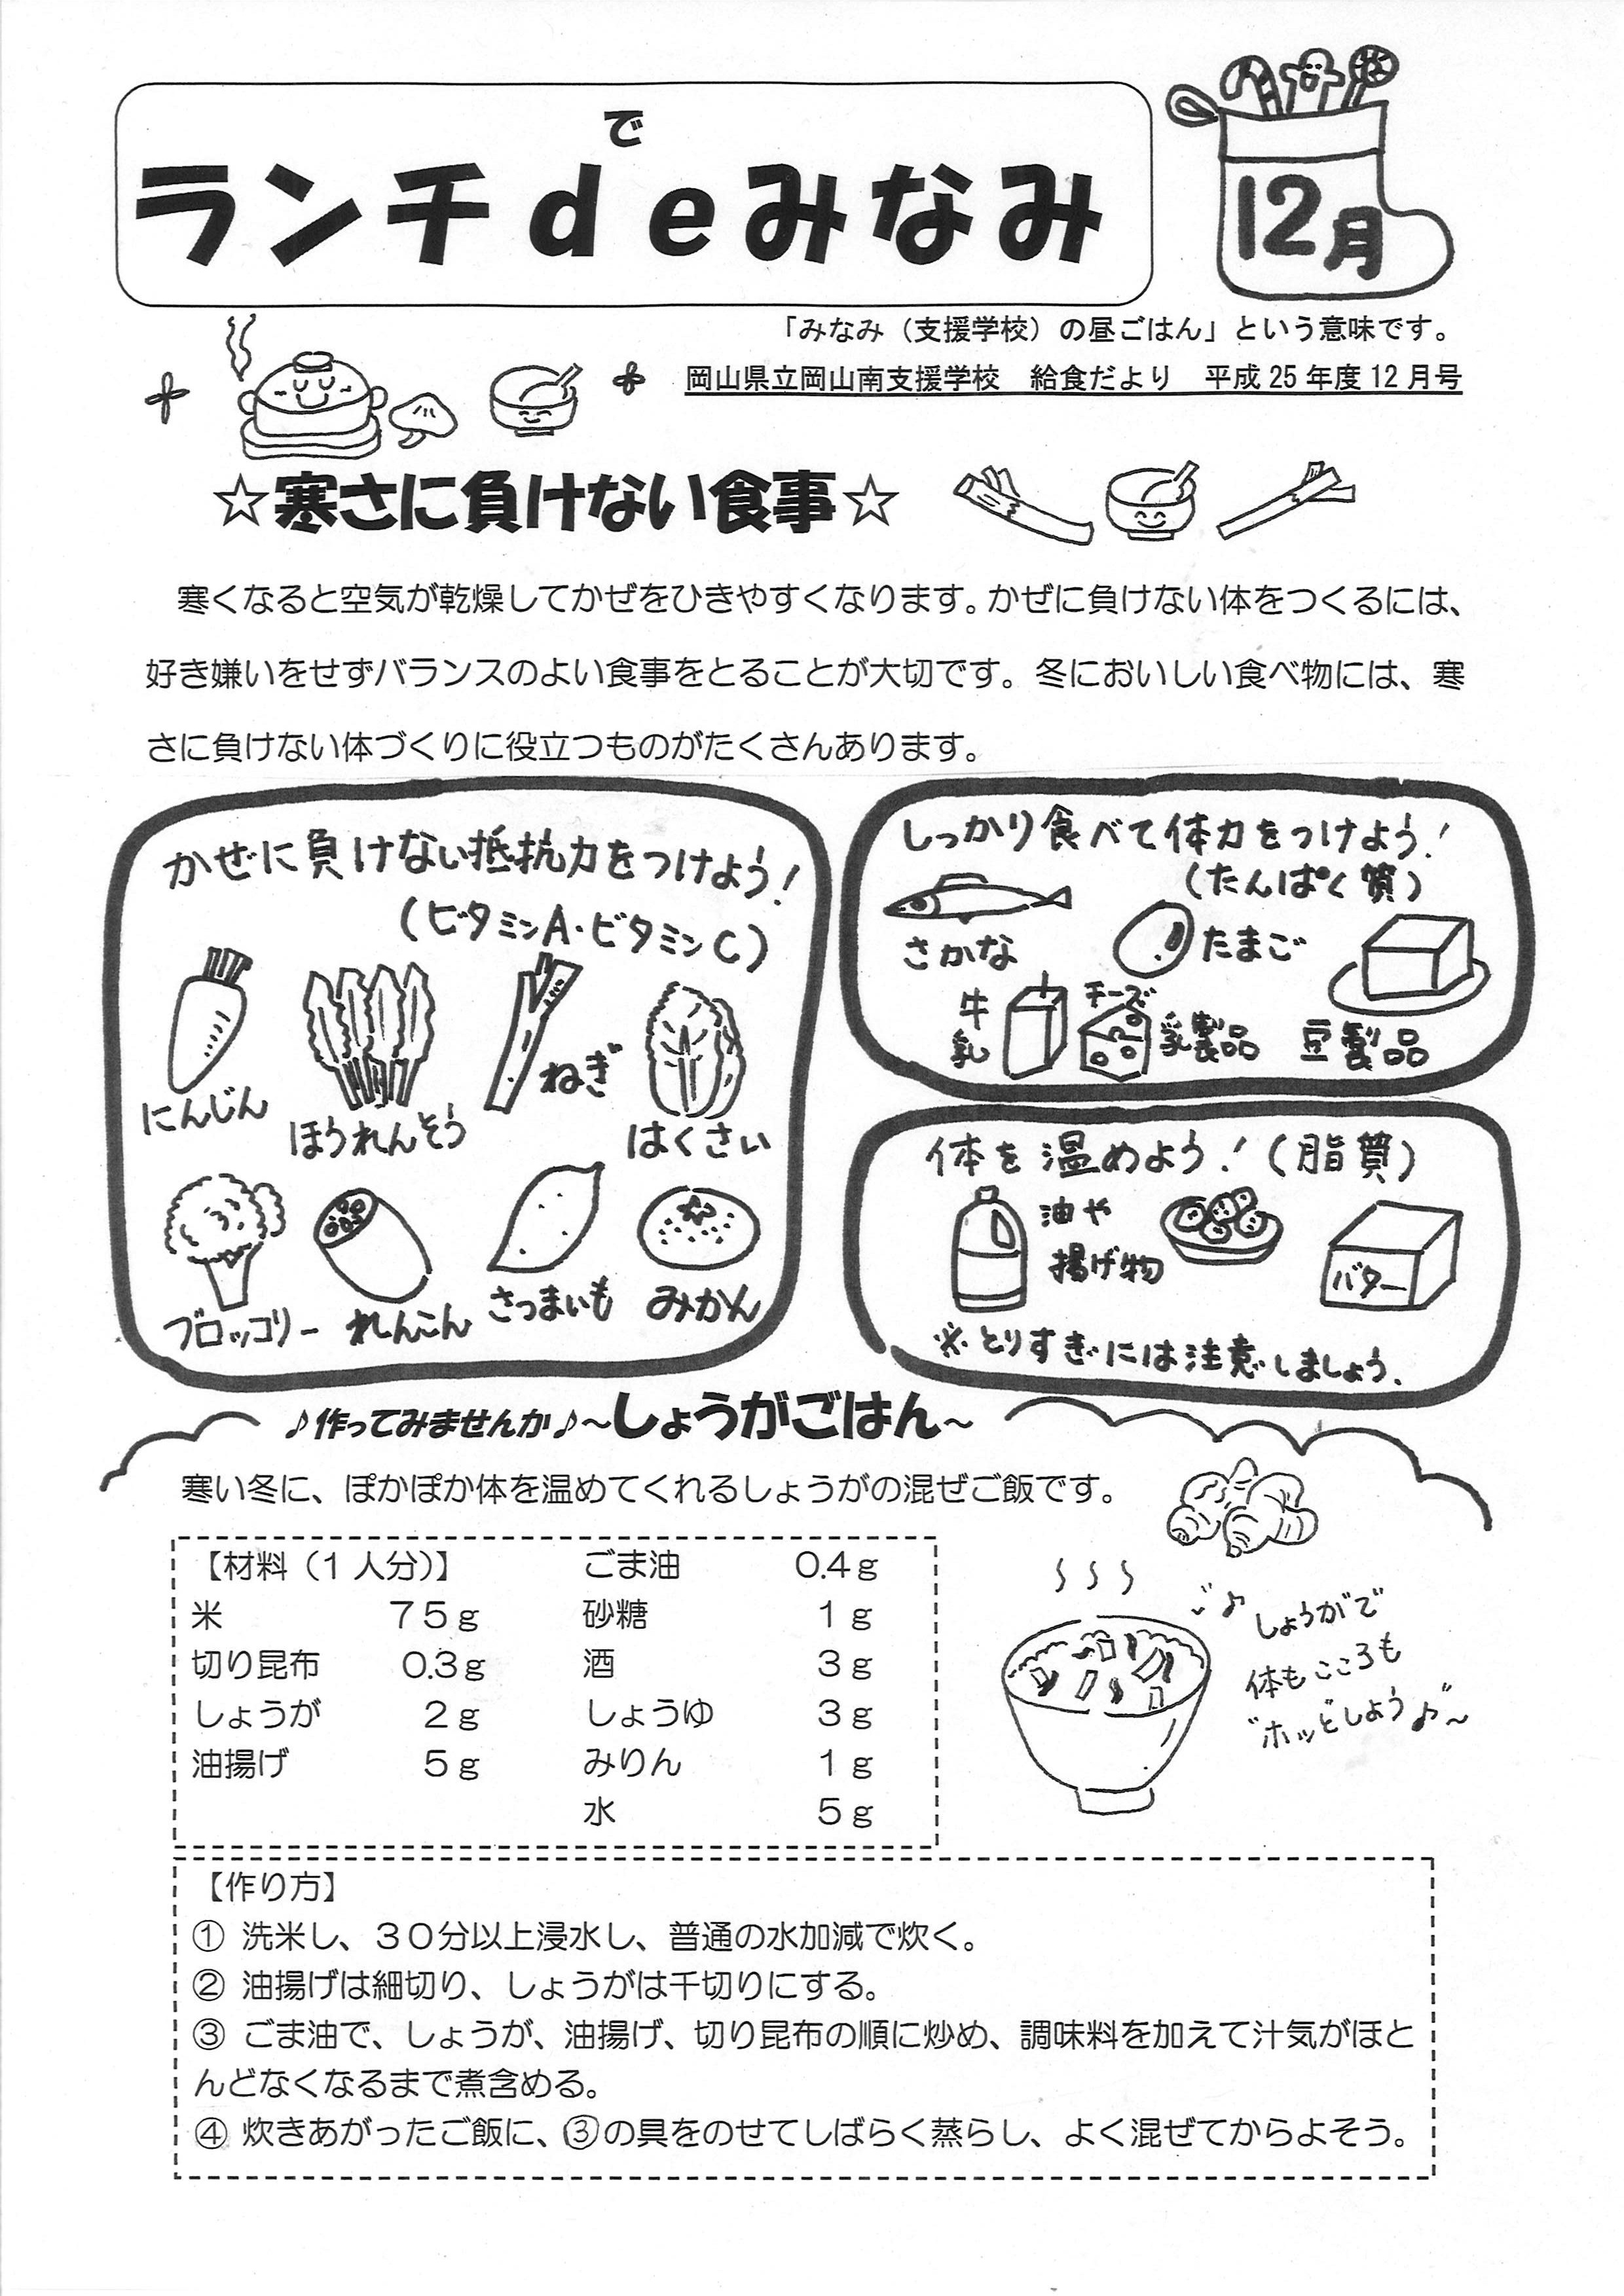 で
ランチｄｅみなみ
12月
「みなみ（支援学校）の昼ごはん」という意味です。
岡山県立岡山南支援学校　給食だより　平成25年度12月号
☆寒さに負けない食事☆
寒くなると空気が乾燥してかぜをひきやすくなります。かぜに負けない体をつくるには、
好き嫌いをせずバランスのよい食事をとることが大切です。冬においしい食べ物には、寒
さに負けない体づくりに役立つものがたくさんあります。
かぜに負けない抵抗力をつけよう！
（ビタミンA・ビタミンC）
にんじん
ほうれんそう
ねぎ
はくさい
ブロッコリー
れんこん
さつまいも
みかん
しっかり食べて体力をつけよう！
（たんぱく質）
さかな
たまご
牛乳
チーズ
乳製品
豆製品
体を温めよう！（脂質）
油や
揚げ物
バター
※とりすぎには注意しましょう。
♪作ってみませんか♪～しょうがごはん～
寒い冬に、ぽかぽか体を温めてくれるしょうがの混ぜご飯です。
【材料（1人分）】　ごま油　0.4ｇ
米　７５ｇ　砂糖　１ｇ
切り昆布　0.3ｇ　酒　３ｇ
しょうが　２ｇ　しょうゆ　３ｇ
油揚げ　５ｇ　みりん　１ｇ
水　５ｇ
♪しょうがで
体もこころも
"ホッとしよう♪"～
【作り方】
① 洗米し、３０分以上浸水し、普通の水加減で炊く。
② 油揚げは細切り、しょうがは千切りにする。
③ ごま油で、しょうが、油揚げ、切り昆布の順に炒め、調味料を加えて汁気がほと
んどなくなるまで煮含める。
④ 炊きあがったご飯に、③の具をのせてしばらく蒸らし、よく混ぜてからよそう。